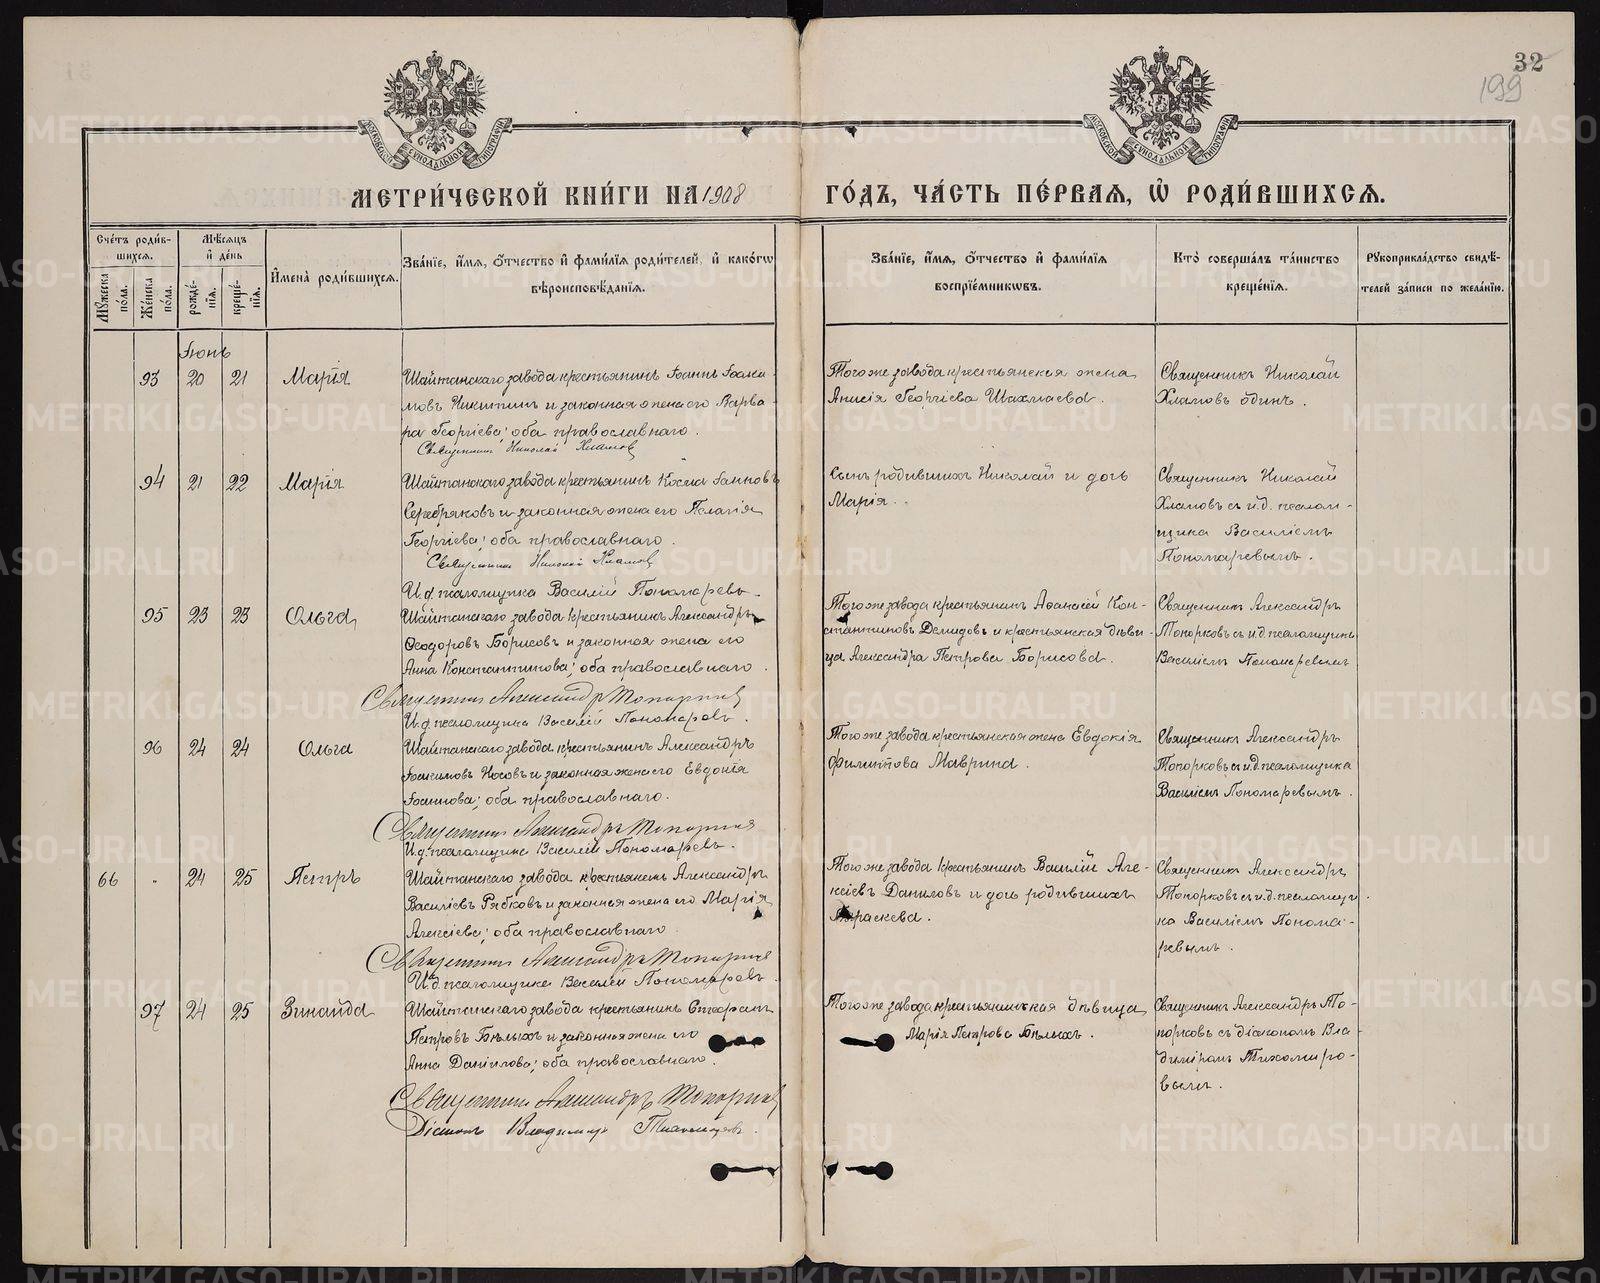 32
199
МЕТРИ́ЧЕСКОЙ КНИ́ГИ НА 1908 ГО́ДЪ, ЧА́СТЬ ПЕ́РВАЯ, Ѡ҆ РОДИ́ВШИХСѦ.
МОСКОВСКОЙ СѴНОДАЛЬНОЙ ТИПОГРАФІИ
МОСКОВСКОЙ СѴНОДАЛЬНОЙ ТИПОГРАФІИ
Сче́тъ роди́в-
шихся.
Мꙋ́жеска по́ла.
Же́нска по́ла.
Мѣ́сяцъ и҆ де́нь
рожде́-нїя.
креще́-нїя.
И҆мена̀ роди́вшихся.
Зва́нїе, и҆́мя, ѻ҆́тчество и҆ фами́лїя роди́телей, и҆ како́гѡ
вѣроисповѣ́данїя.
Зва́нїе, и҆́мя, ѻ҆́тчество и҆ фами́лїя
воспрїе́мникѡвъ.
Кто̀ соверша́лъ та́инство
креще́нїя.
Рꙋкоприкла́дство свидѣ́-
телей за́писи по жела́нїю.
Іюнь
93 20 21 Марія
Шайтанскаго завода крестьянинъ Іоаннъ Іоаки-
мовъ Никитинъ и законная жена его Варва-
ра Георгіева; оба православнаго.
Священникъ Николай Хламовъ
Того же завода крестьянская жена
Анисія Георгіева Шахмаева.
Священникъ Николай
Хламовъ одинъ.
94 21 22 Марія
Шайтанскаго завода крестьянинъ Косма Іоанновъ
Серебряковъ и законная жена его Пелагія
Георгіева; оба православнаго.
Священникъ Николай Хламовъ
И.д. псаломщика Василій Пономаревъ.
Сынъ родившихъ Николай и дочь
Марія.
Священникъ Николай
Хламовъ съ и.д. псалом-
щика Василіемъ
Пономаревымъ.
95 23 23 Ольга
Шайтанскаго завода крестьянинъ Александръ
Ѳеодоровъ Борисовъ и законная жена его
Анна Константинова; оба православнаго.
Священникъ Александръ Топорковъ
И.д. псаломщика Василій Пономаревъ.
Того же завода крестьянинъ Аѳанасій Кон-
стантиновъ Демидовъ и крестьянская дѣви-
ца Александра Петрова Борисова.
Священникъ Александръ
Топорковъ съ и.д. псаломщика
Василіемъ Пономаревымъ
96 24 24 Ольга
Шайтанскаго завода крестьянинъ Александръ
Іоакимовъ Носовъ и законная жена его Евдокія
Іоаннова; оба православнаго.
Священникъ Александръ Топорковъ
И.д. псаломщика Василій Пономаревъ.
Того же завода крестьянская жена Евдокія
Филиппова Маврина.
Священникъ Александръ
Топорковъ съ и.д. псаломщика
Василіемъ Пономаревымъ.
66 . 24 25 Петръ
Шайтанскаго завода крестьянинъ Александръ
Василіевъ Рябковъ и законная жена его Марія
Алексіева; оба православнаго
Священникъ Александръ Топорковъ
И.д. псаломщика Василій Пономаревъ.
Того же завода крестьянинъ Василій Але-
ксіевъ Даниловъ и дочь родившихъ
Параскева.
Священникъ Александръ
Топорковъ съ и.д. псаломщи-
ка Василіемъ Понома-
ревымъ.
97 24 25 Зинаида
Шайтанскаго завода крестьянинъ Стефанъ
Петровъ Бѣлыхъ и законная жена его
Анна Даніилова; оба православнаго.
Священникъ Александръ Топорковъ
Діаконъ Владимиръ Тихомировъ.
Того же завода крестьянская дѣвица
Марія Петрова Бѣлыхъ.
Священникъ Александръ То-
порковъ съ діакономъ Вла-
димиромъ Тихомиро-
вымъ.
METRIKI.GASO-URAL.RU